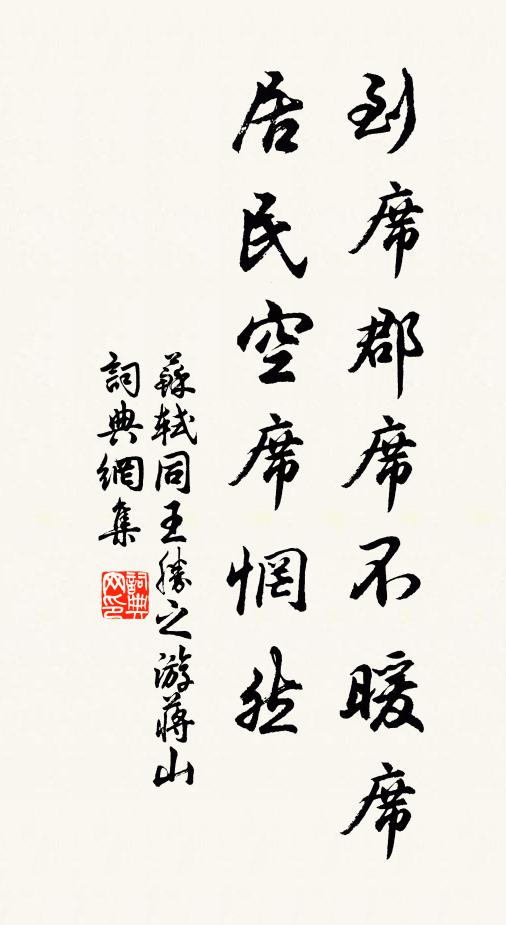 到席郡席不暖席
居民空席惘然
蘇軾同王勝之游蔣山
詞典網集
詞典网印